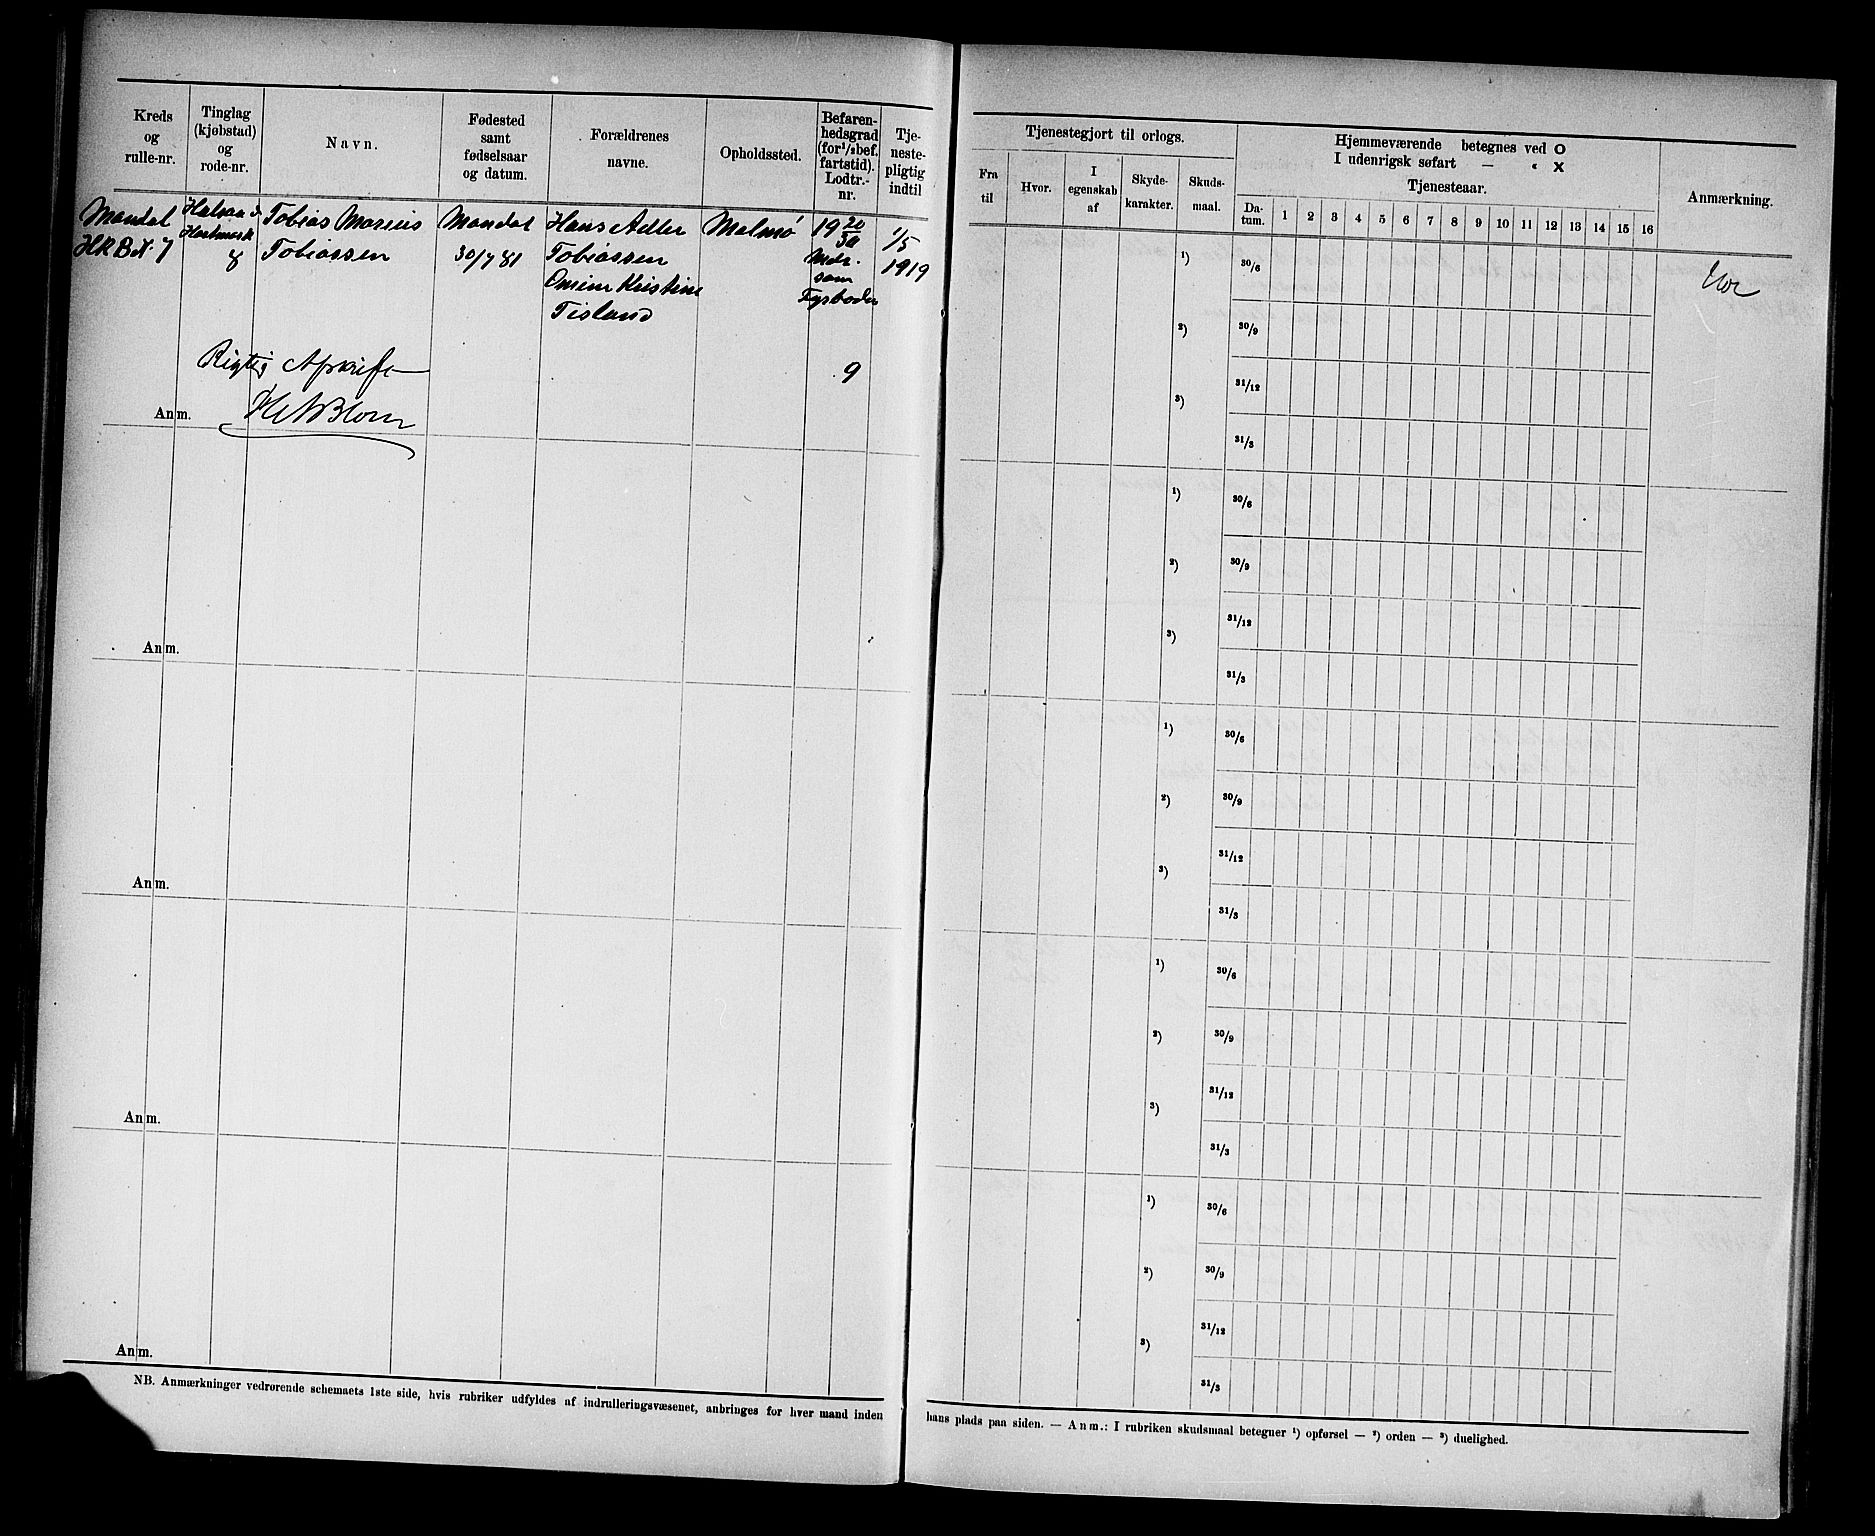 Kreds og rulle-nr.
Tinglag (kjøbstad) og rode-nr.
Navn.
Fødested samt fødselsaar og datum.
Forældrenes navne.
Opholdssted.
Befarenhedsgrad (for 1/2 bef. fartstid). Lodtr.-nr.
Tjenestepligtig indtil
Mandal
Halsaa &
Hartmark
Tobias Marius
Mandal
Hans Adler
Malmø
19 20/30
1/5
8
Tobiassen
30/7 81
Tobiassen
Mdr.
1919
som
Kristine
Fyrbøder
Tisland
Rigtig Afskrift
9
Anm.
Anm.
Anm.
Anm.
Anm.
NB. Anmærkninger vedrørende schemaets 1ste side, hvis rubriker udfyldes af indrulleringsvæsenet, anbringes for hver mand inden
Tjenestegjort til orlogs.
Hjemmeværende betegnes ved O
I udenrigsk søfart — « X
Tjenesteaar.
Anmærkning.
Fra til
Hvor.
I egenskab af
Skydekarakter.
Skudsmaal.
Datum.
1 2 3 4 5 6 7 8 9 10 11 12 13 14 15 16
1) 30/6
2) 30/9
31/12
3)
31/3
1) 30/6
2) 30/9
31/12
3)
31/3
1) 30/6
2) 30/9
31/12
3)
31/3
1) 30/6
2) 30/9
31/12
3)
31/3
1) 30/6
2) 30/9
31/12
3)
31/3
hans plads paa siden. — Anm.: I rubriken skudsmaal betegner 1) opførsel — 2) orden — 3) duelighed.